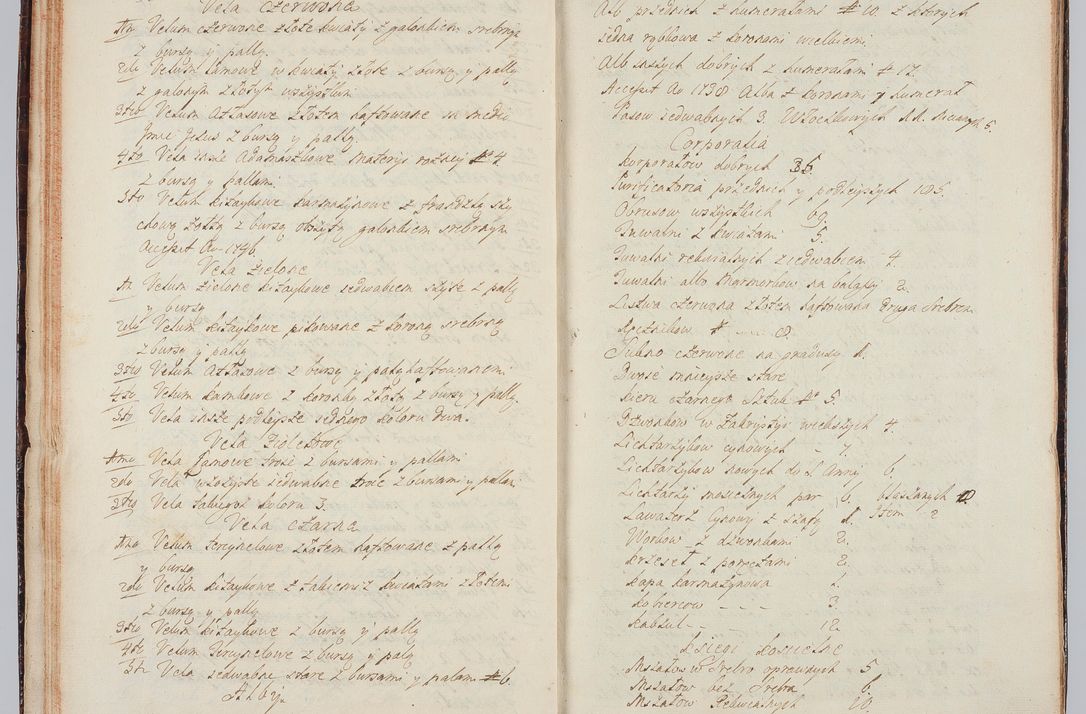 Vela Czerwone
1mo Velum czerwone złote kwiaty z galonkiem srebrnym
z bursą y pallą.
2do Velum lamowe w kwiaty złote z bursą y pallą
z galonym złotym wszystkim
3tio Velum Atłasowe złotem haftowane in medio
Jmie Jezus z bursą y pallą.
4to Vela insze Adamaszkowe materyi rożney No 4
z bursą y pallami
5to Velum kitaykowe karmazynowe z
złotą z bursą obszyty galonkiem srebrnym
Accessit Ao 1746.
Vela Zielone
1m Velum zielone kitaykowe jedwabiem szyte z pallą
y bursą
2do Velum kitaykowe pikowane z koroną srebrną
z bursą y pallą
3tio Velum Atłasowe z bursą y pallą haftowanemi
4to Velum kamkowe z koronką złotą z bursą y pallą.
5to Vela insze podleysze jednego koloru dwa.
Vela Fioletowe
1mo Vela Lamowe troie z bursami y pallami
2do Vela wzorzyste jedwabne troie z bursami y pallami
3tio Vela koloru 3.
Vela czarne
1mo Velum złotem haftowane z pallą
y bursą
2do Velum kitaykowe z kwiatami złotemi
z bursą y pallą
3tio Velum kitaykowe z bursą y pallą
4to Velum z bursą y pallą
5te Vela jedwabne stare z bursami y palami # 6.
Alby.
Alb przednich z humerałami # 10. z których
jedna rąbkowa z koronami wielkiemi
Alb inszych dobrych z humerałami # 17.
Accessit Ao 1738 Alba z koronami y humerał
Pasow jedwabnych 3. Włoczkowych 5.
Corporalia
Korporałów dobrych 36.
Purificatoria przednich y podleyszych 185.
Obrusow wszystkich 60
Tuwalni z kwiatami 5.
Tuwalni z jedwabiem 4.
Tuwalni albo na balasy 2.
Listwa czerwona złotem haftowana druga srebrem
# 8.
Sukno czerwone na gradusy 1.
Drugie mnieysze stare
czarnego Sztuk No 5.
Dzwonkow w Zakrystyi wiekszych 4.
Lichtarzykow cynowych - 7.
Lichtarzykow nowych do S. Anny 6.
Lichtarzy mosieznych par 6.
Lawaterz Cynowy z szafą 1. Item 2
Workow z dzwonkami 2.
Krzeseł z poreczami 2.
Kapa karmazynowa 1.
Kobiercow - - - 3.
- - 12.
Xięgi koscielne
Mszałow w srebro oprawnych 5
Mszałow bez srebra 6.
Mszałow Rekwialnych 10.